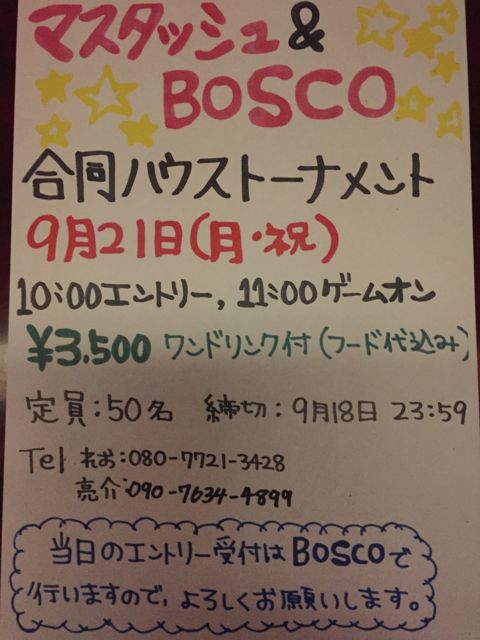 マスタッシュ&
BOSCO
合同ハウストーナメント
9月21日(月・祝)
10:00エントリー, 11:00ゲームオン
¥3.500 ワンドリンク付(フード代込み)
定員:50名 締切:9月18日 23:59
Tel れお:080-7721-3428
亮介:090-7634-4899
当日のエントリー受付はBOSCOで
行いますので、よろしくお願いします。